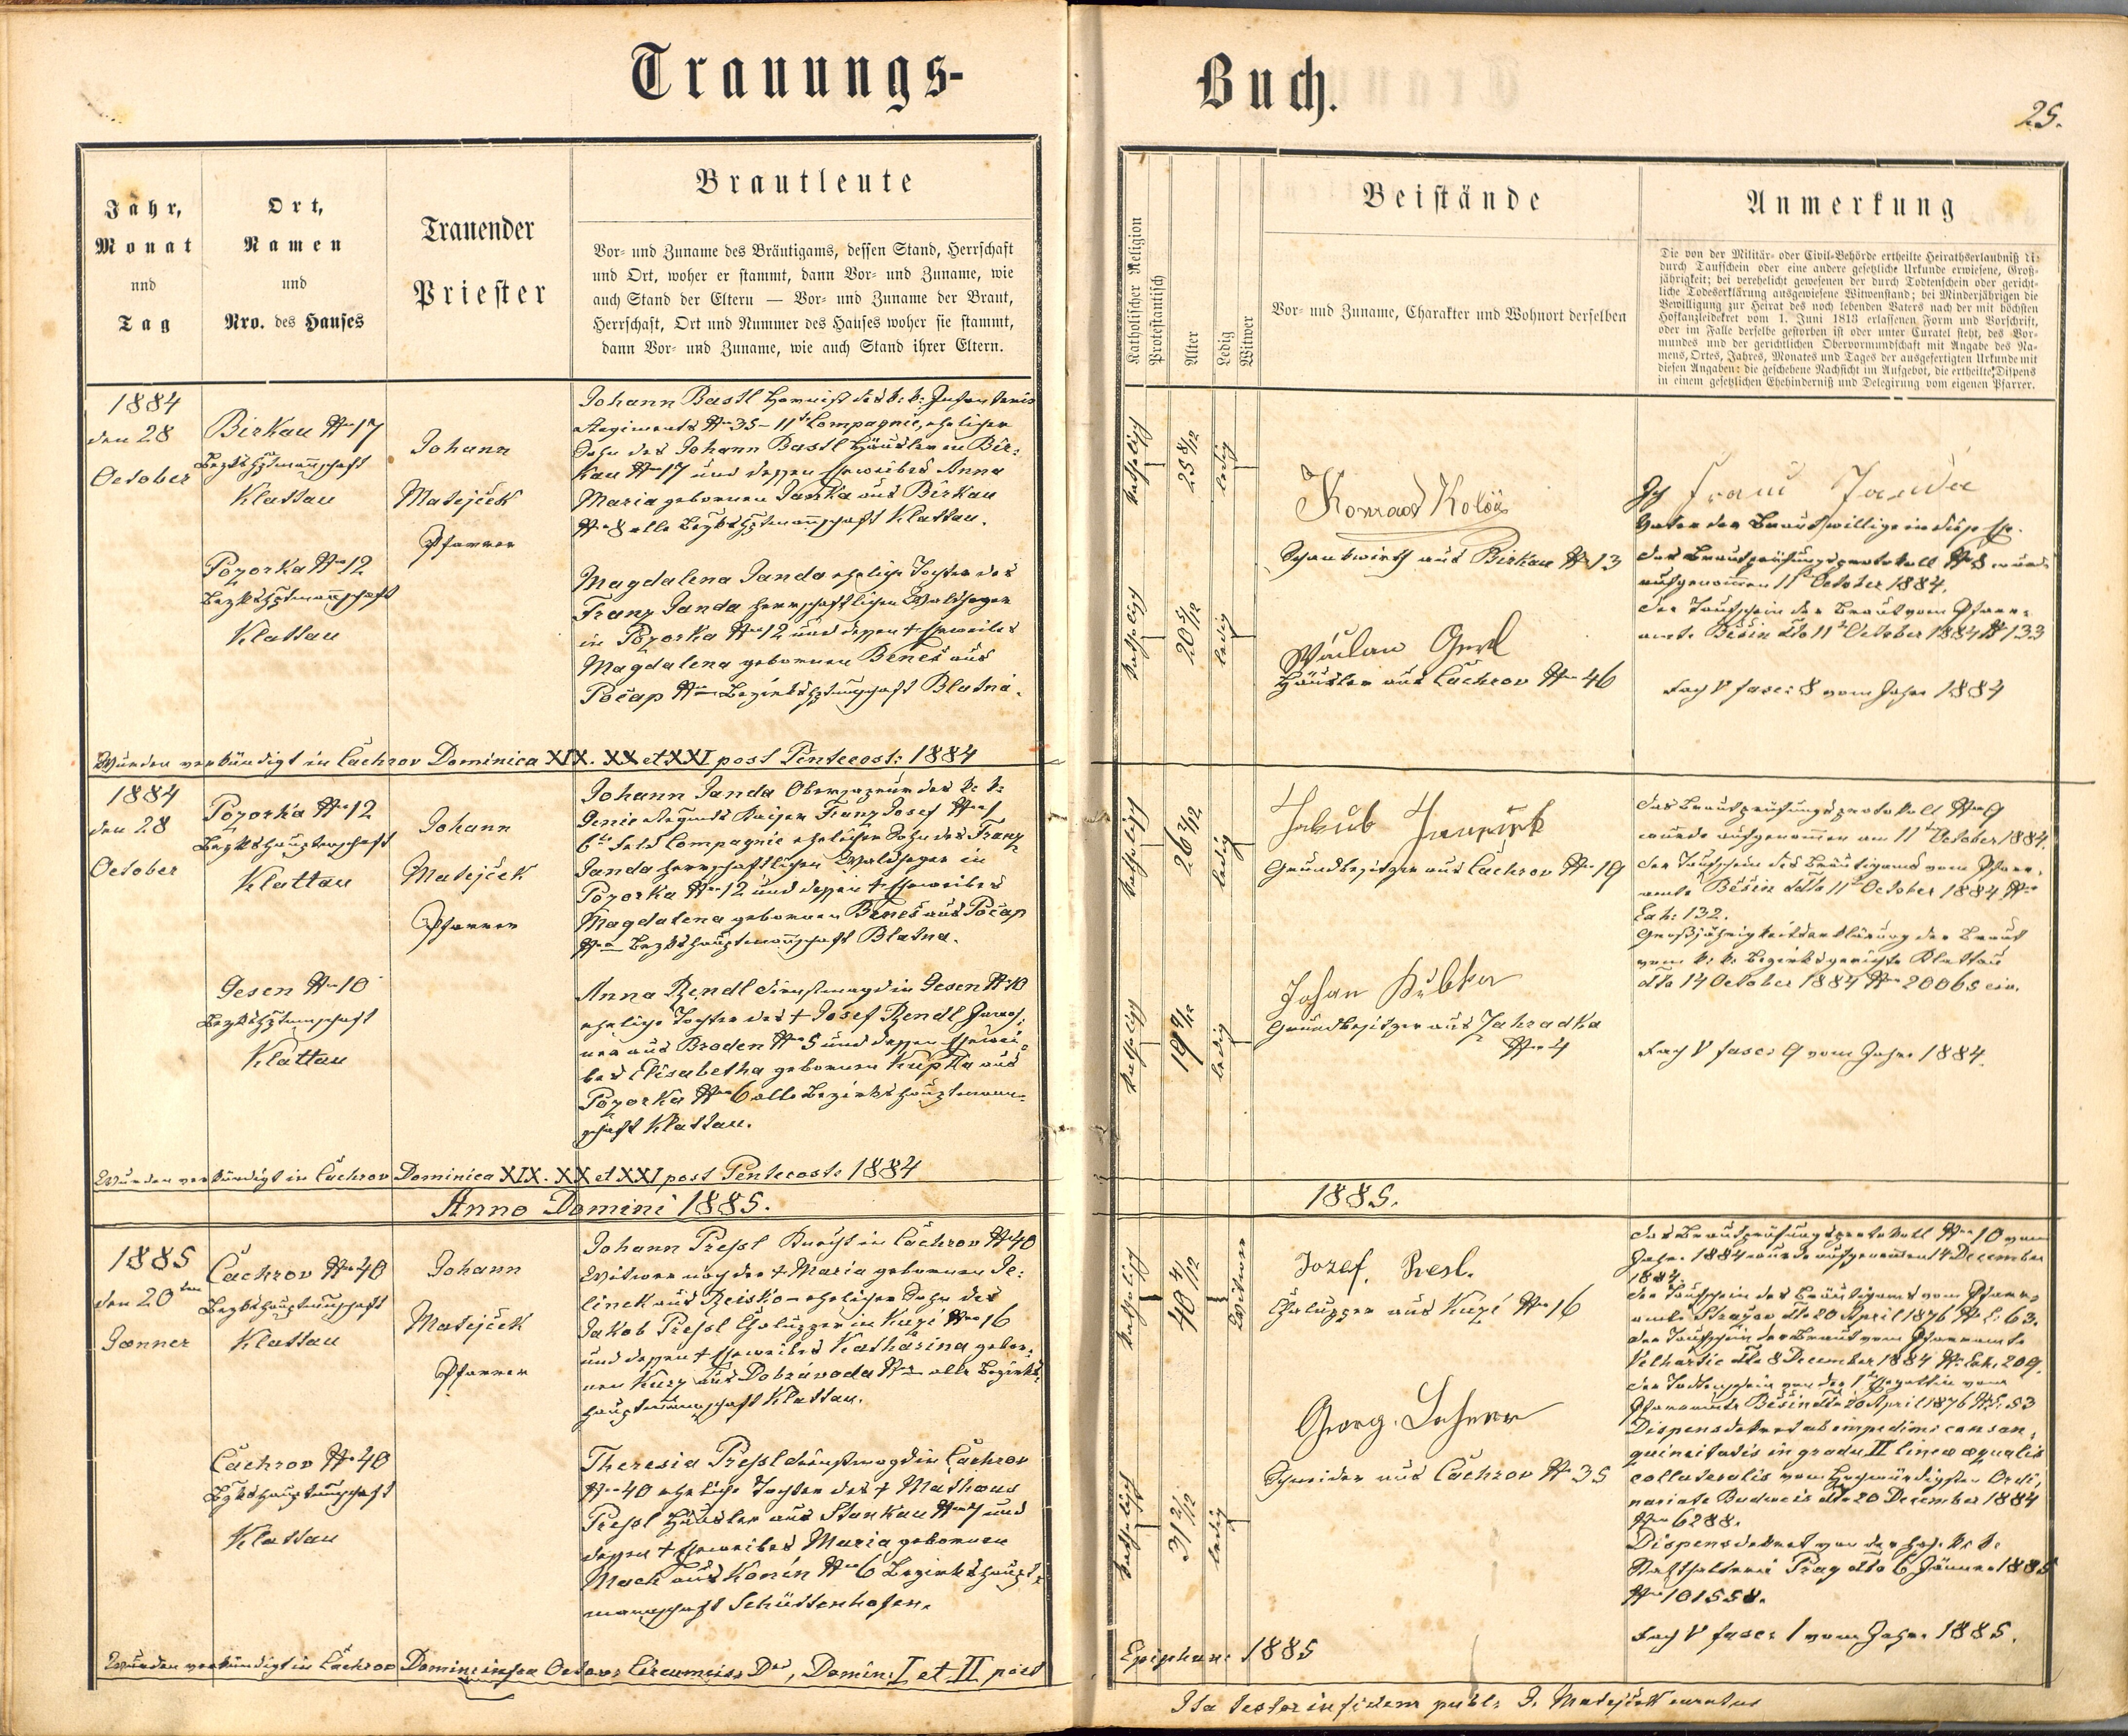 Trauungs-
Jahr,
Monat
und
Tag
Ort,
Namen
und
Nro. des Hauses
Trauender
Priester
Brautleute
Vor- und Zuname des Bräutigams, dessen Stand, Herrschaft
und Ort, woher er stammt, dann Vor- und Zuname, wie
auch Stand der Eltern — Vor- und Zuname der Braut,
Herrschaft, Ort und Nummer des Hauses woher sie stammt,
dann Vor- und Zuname, wie auch Stand ihrer Eltern.
1884
den 28
October
Birkau No 17
Klattau
Pozorka No 12
Klattau
Johann
Matejček
Pfarrer
Johann Bastl Hornist des k. k. Infanterie
Regiments No 35 - 11t Compagnie, ehelicher
Sohn des Johann Bastl Häusler in Bir-
kau No 17 und dessen Eheweibes Anna
Maria geborenen Janka aus Birkau
No 8 alle Bezkshptmannschaft Klattau.
Magdalena Janda eheliche Tochter des
Franz Janda herrschaftlichen Waldheger
in Pozorka No 12 und dessen + Eheweibes
Magdalena geborenen Beneš aus
Počap No — Bezirkshptmschaft Blatná.
Wurden verkündigt in Čachrov Dominica XIX. XX et XXI post Pentecost: 1884
1884
den 28
October
Pozorka No 12
Klattau
Gesen No 10
Klattau
Johann
Matejček
Pfarrer
Johann Janda Oberjazeur des k. k.
Genie Regmts Kaiser Franz Josef No 1
6te Feld Compagnie ehelicher Sohn des Franz
Janda herrschaftlichen Waldheger in
Pozorka No 12 und dessen + Eheweibes
Magdalena geborenen Beneš aus Počap
No — Bezkshauptmannschaft Blatna.
Anna Rendl Dienstmagd in Gesen No 10
eheliche Tochter des + Josef Rendl
aus Braden No 5 und dessen Ehewei-
bes Elisabetha geborenen Kupka aus
Pozorka No 6 alle Bezirkshauptmann-
schaft Klattau.
Wurden verkündigt in Čachrov Dominica XIX. XX et XXI post Pentecost: 1884
Anno Domini 1885.
1885
den 20ten
Jänner
Čachrov No 40
Klattau
Čachrov No 40
Klattau
Johann
Matejček
Pfarrer
Johann Pressl Knecht in Čachrov No 40
Witwer nach der + Maria geborenen Je-
linek aus Reisko - ehelicher Sohn des
Jakob Pressl Chalupper in Kuzi No 16
und dessen + Eheweibes Katharina gebor-
nen Kuzy aus Dobrávoda No — alle Bezirks-
hauptmannschaft Klattau.
Theresia Pressl Dienstmagd in Čachrov
No 40 eheliche Tochter des + Mathaus
Pressl Häusler aus Stankau No 7 und
dessen + Eheweibes Maria geborenen
Mack aus Konín No 6 Bezirkshaupt-
mannschaft Schüttenhofen.
Wurden verkündigt in Čachrov Domin: infra Octav: Circumciss Dni, Domin: I et II post
Buch.
25.
Katholischer Religion
Protestantisch
Alter
Ledig
Witwer
Beistände
Vor- und Zuname, Charakter und Wohnort derselben
Anmerkung
Die von der Militär- oder Civil-Behörde ertheilte Heirathserlaubniß
durch Taufschein oder eine andere gesetzliche Urkunde erwiesene, Groß-
jährigkeit; bei verehelicht gewesenen der durch Todtenschein oder gericht-
liche Todeserklärung ausgewiesene Witwenstand; bei Minderjährigen die
Bewilligung zur Heirat des noch lebenden Vaters nach der mit höchsten
Hofkanzleidekret vom 1. Juni 1813 erlassenen Form und Vorschrift,
oder im Falle derselbe gestorben ist oder unter Curatel steht, des Vor-
mundes und der gerichtlichen Obervormundschaft mit Angabe des Na-
mens, Ortes, Jahres, Monates und Tages der ausgefertigten Urkunde mit
diesen Angaben: die geschehene Nachsicht im Aufgebot, die ertheilte Dispens
in einem gesetzlichen Ehehinderniß und Delegirung vom eigenen Pfarrer.
katholisch
25 8/12
ledig
katholisch
20 5/12
ledig
Konrad
Schankwirth aus Birkau No 13
Häusler aus Čachrov No 46
Ich Franz Janda
Vater der Braut willige in diese Ehe.
Das Brautprüfungsprotokoll No 8 wurde
aufgenommen 11t October 1884.
Der Taufschein der Braut vom Pfarr-
amte Běšin dto 11t October 1884 No 133
Fach V fasc: 8 vom Jahre 1884
katholisch
26 2/12
ledig
katholisch
19 9/12
ledig
Jakub
Grundbesitzer aus Čachrov No 19
Johan
Grundbesitzer aus Zahradka
No 4
Das Brautprüfungsprotokoll No 9
wurde aufgenommen am 11t October 1884.
Der Taufschein des Bräutigams vom Pfarr-
amte Běšin ddto 11t October 1884 No
Exh: 132.
Großjährigkeitserklärung der Braut
vom k. k. Bezirksgerichte Klattau
dto 14 October 1884 No 20065 civ.
Fach V fasc: 9 vom Jahre 1884.
1885.
katholisch
40 4/12
Witwer
katholisch
31 2/12
ledig
Jozef Presl.
Chalupper aus Kuzi No 16
Georg
Schneider aus Čachrov No 35
Das Brautprüfungsprotokoll No 10 vom
Jahre 1884 wurde aufgenommen 14 December
1884.
Der Taufschein des Bräutigams vom Pfarr-
amte dto 20 April 1876 No E: 63.
Der Taufschein der Braut vom Pfarramte
Velhartic dto 8 December 1884 No Exh. 209.
Der Todtenschein von der 1t Ehegattin vom
Pfarramte Běšin dto 20 April 1876 No E. 53
Dispensdekret ab impedim: consan-
guinitatis in gradu II linea æqualis
collateralis vom Hochwürdigsten Ordi-
nariate Budweis dto 20 December 1884
No 6288.
Dispensdekret von der hoh. k. k.
Statthalterei Prag dto 6 Jänner 1885
No 101558.
Fach V fasc: 1 vom Jahre 1885.
Epiphan: 1885
Ita testor in fidem publ: J. Matejček curatus